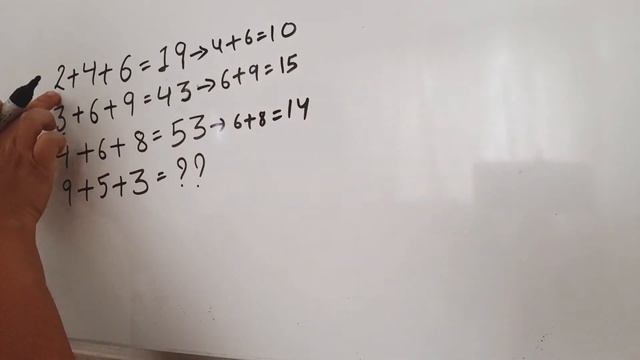 2+4+6=19→4+6=10
3+6+9=43→6+9=15
4+6+8=53→6+8=14
9+5+3=??